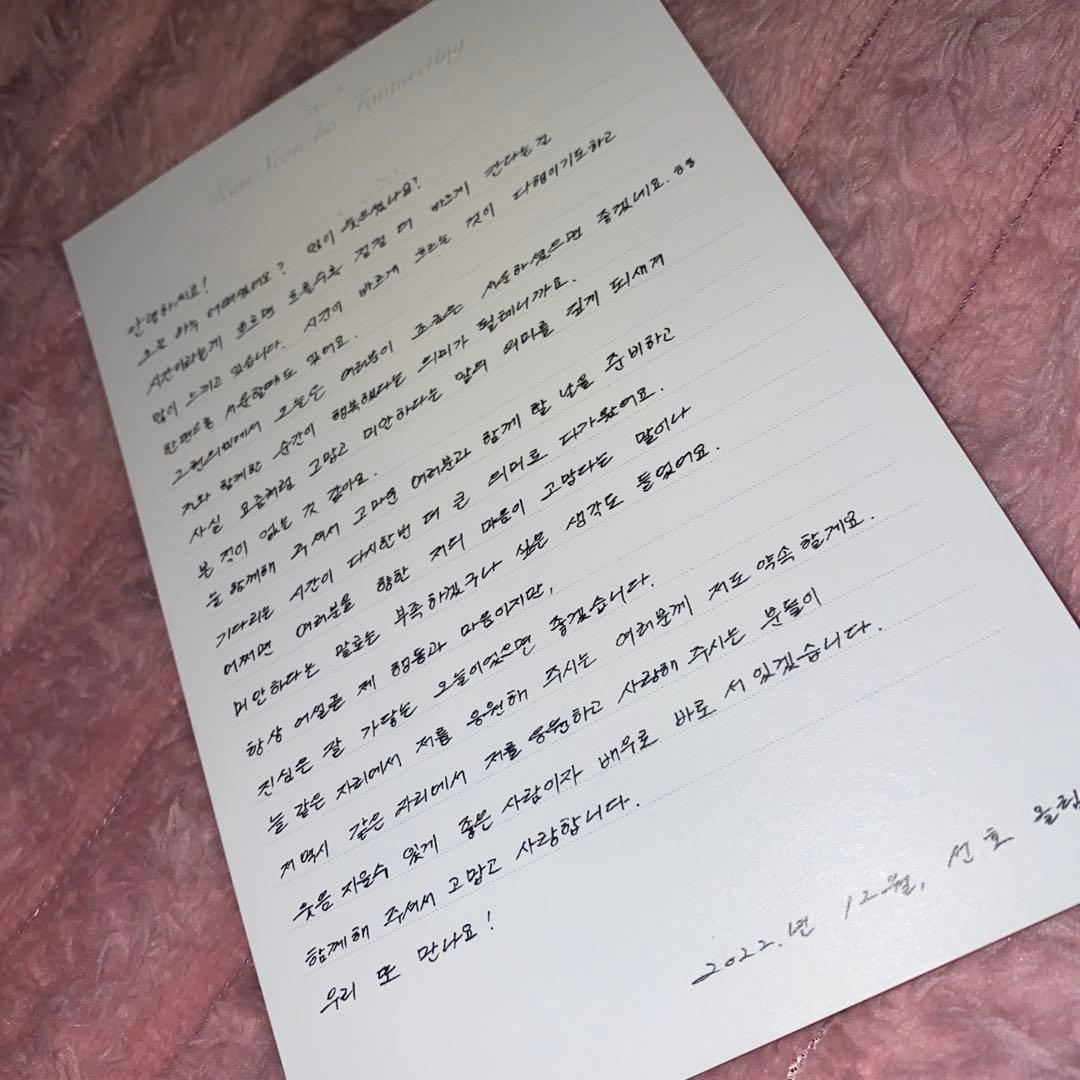 2022
Kim Seon Ho Fanmeeting
안녕하세요!
오늘 하루 어떠셨어요? 많이 웃으셨나요?
시간이라는게 흐르면 흐를수록 점점 더 빠르게 간다는걸
많이 느끼고 있습니다. 시간이 빠르게 흐르는 것이 다행이기도하고
한편으론 서운할때도 있어요.
그런의미에서 오늘은 여러분이 조금은 서운하셨으면 좋겠네요.ㅎㅎ
저와 함께한 순간이 행복했다는 의미가 될테니까요.
사실 요즘처럼 고맙고 미안하다는 말의 의미를 깊게 되새겨
본 적이 없는 것 같아요.
늘 함께해 주셔서 고마운 여러분과 함께 할 날을 준비하고
기다리는 시간이 다시한번 더 큰 의미로 다가왔어요.
어쩌면 여러분을 향한 저의 마음이 고맙다는 말이나
미안하다는 말로는 부족하겠구나 싶은 생각도 들었어요.
항상 어설픈 제 행동과 마음이지만,
진심은 잘 가닿는 오늘이었으면 좋겠습니다.
늘 같은 자리에서 저를 응원해 주시는 여러분께 저도 약속할게요.
저 역시 같은 자리에서 저를 응원하고 사랑해 주시는 분들이
웃음 지을수 있게 좋은 사람이자 배우로 바로 서 있겠습니다.
함께해 주셔서 고맙고 사랑합니다.
우리 또 만나요!
2022.년 12월, 선호 올림